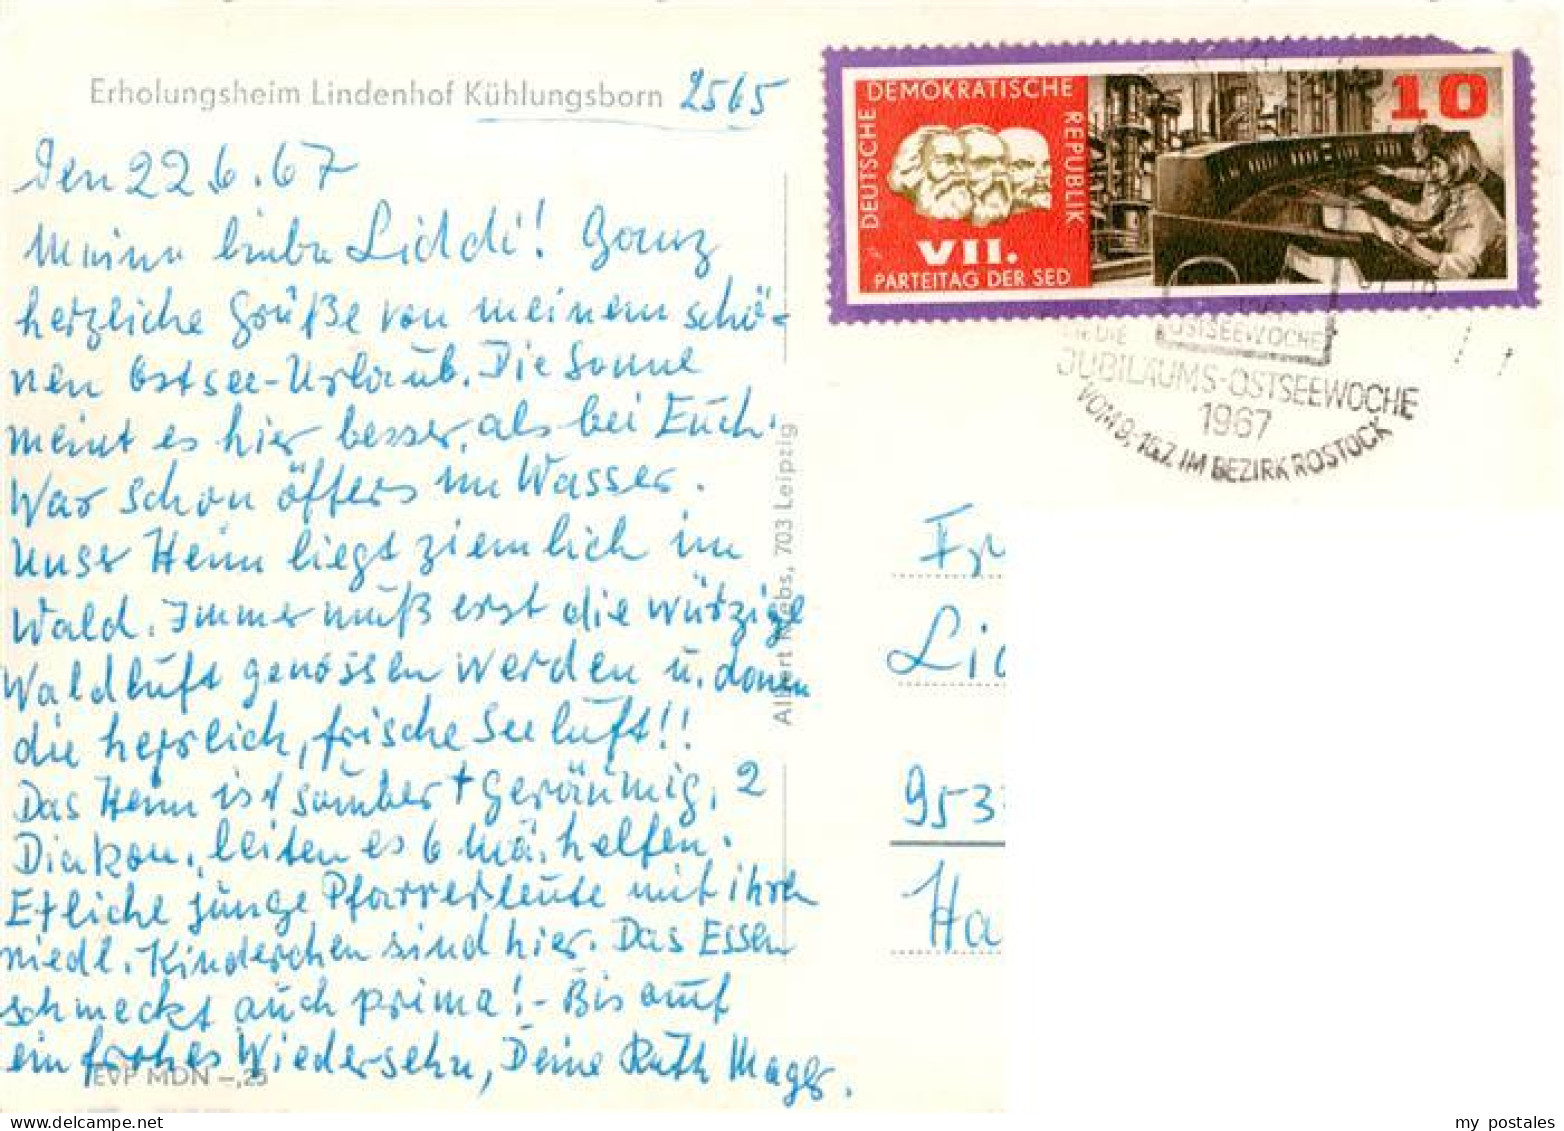 Erholungsheim Lindenhof Kühlungsborn 2565
Den 22.6.67
Meine liebe Liddi! Ganz
herzliche Grüße von meinem schö-
nen Ostsee-Urlaub. Die Sonne
meint es hier besser, als bei Euch.
War schon öfters im Wasser.
Unser Heim liegt ziemlich im
Wald. Immer muß erst die würzige
Waldluft genossen werden u. dann
die herrlich, frische Seeluft!!
Das Heim ist sauber + geräumig, 2
Diakon. leiten es 6 Mä. helfen.
Etliche junge Pfarrersleute mit ihren
niedl. Kinderchen sind hier. Das Essen
schmeckt auch prima! - Bis auf
ein frohes Wiedersehn, Deine Ruth Mager.
EVP MDN -,25
Albert Krebs, 703 Leipzig
DEUTSCHE DEMOKRATISCHE REPUBLIK
10
VII.
PARTEITAG DER SED
1967
OSTSEEWOCHE
JUBILÄUMS-OSTSEEWOCHE
1967
IM BEZIRK ROSTOCK
Fr
Lid
953
Ha
my postales